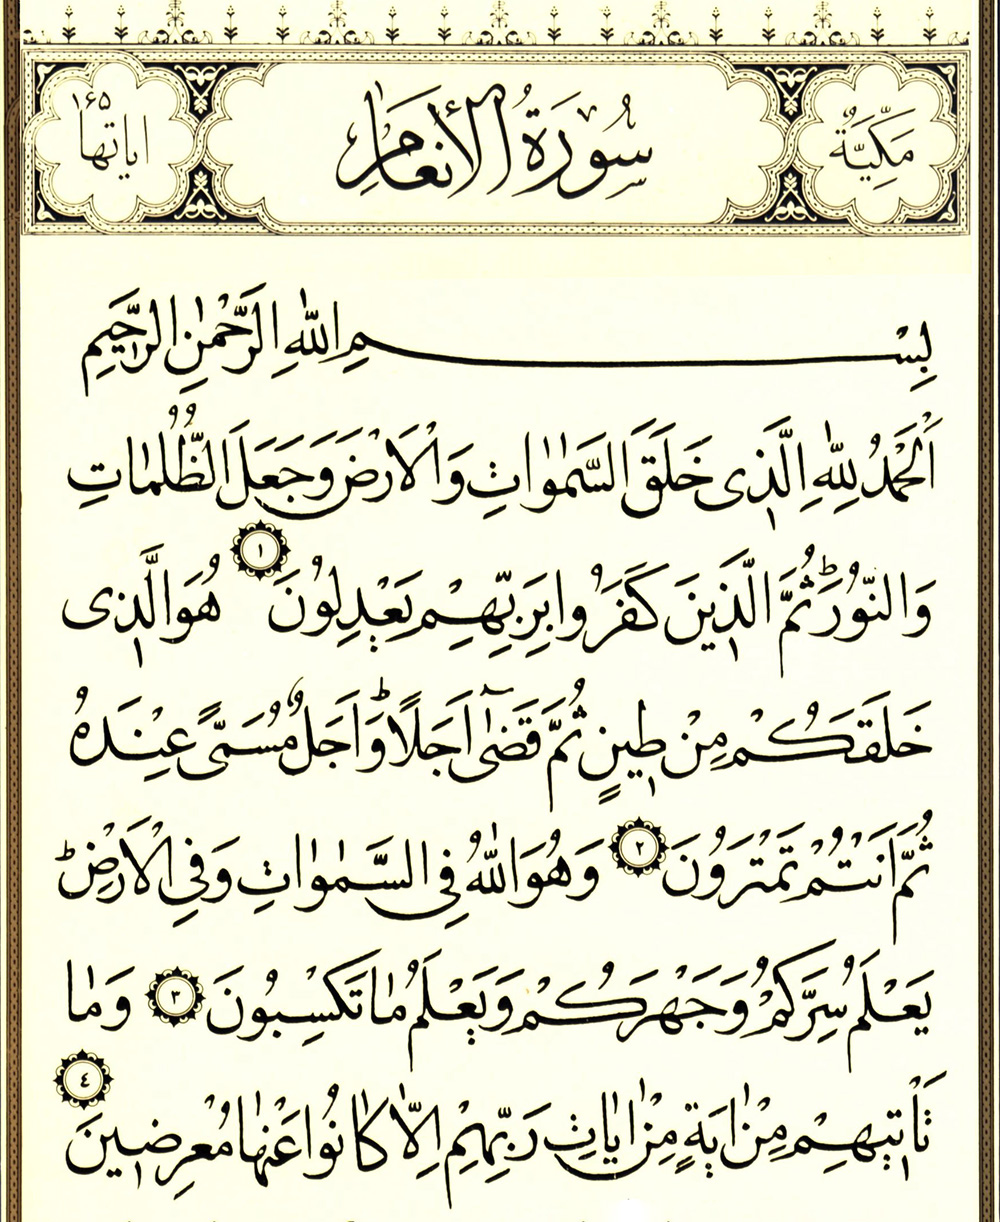 مَكِّيَّةٌ
سُورَةُ الْأَنْعَامِ
اياتها ۱۶۵
بِسْمِ اللّٰهِ الرَّحْمٰنِ الرَّحِيمِ
اَلْحَمْدُ لِلّٰهِ الَّذِى خَلَقَ السَّمٰوٰاتِ وَالْاَرْضَ وَجَعَلَ الظُّلُمٰاتِ
وَالنُّورَ ؕ ثُمَّ الَّذِينَ كَفَرُوا بِرَبِّهِمْ يَعْدِلُونَ ١ هُوَ الَّذِى
خَلَقَكُمْ مِنْ طِينٍ ثُمَّ قَضٰٓى اَجَلًا ؕ وَاَجَلٌ مُسَمًّى عِنْدَهُ
ثُمَّ اَنْتُمْ تَمْتَرُونَ ٢ وَهُوَ اللّٰهُ فِى السَّمٰوٰاتِ وَفِى الْاَرْضِ ؕ
يَعْلَمُ سِرَّكُمْ وَجَهْرَكُمْ وَيَعْلَمُ مٰا تَكْسِبُونَ ٣ وَمٰا
تَاْتِيهِمْ مِنْ اٰيَةٍ مِنْ اٰيٰاتِ رَبِّهِمْ اِلّٰا كٰانُوا عَنْهٰا مُعْرِضِينَ ٤